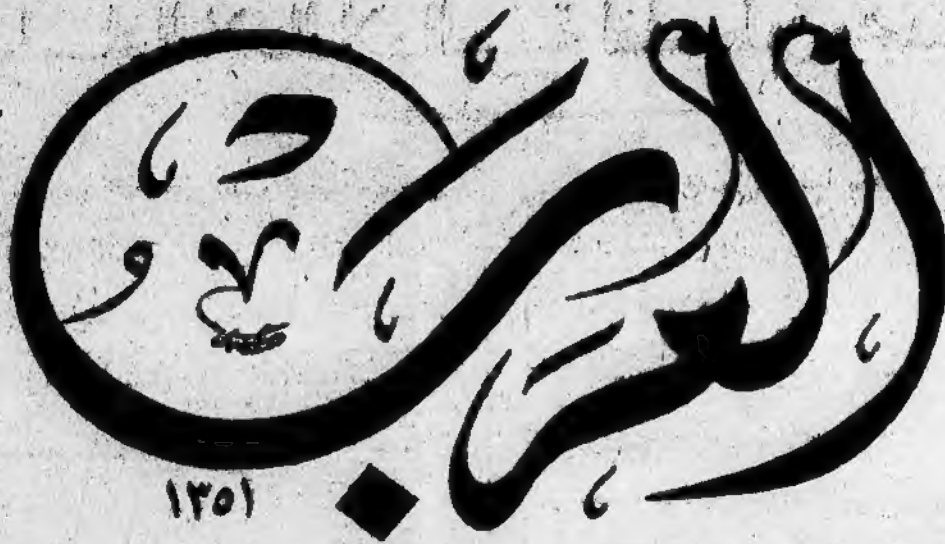 العرب
١٣٥١